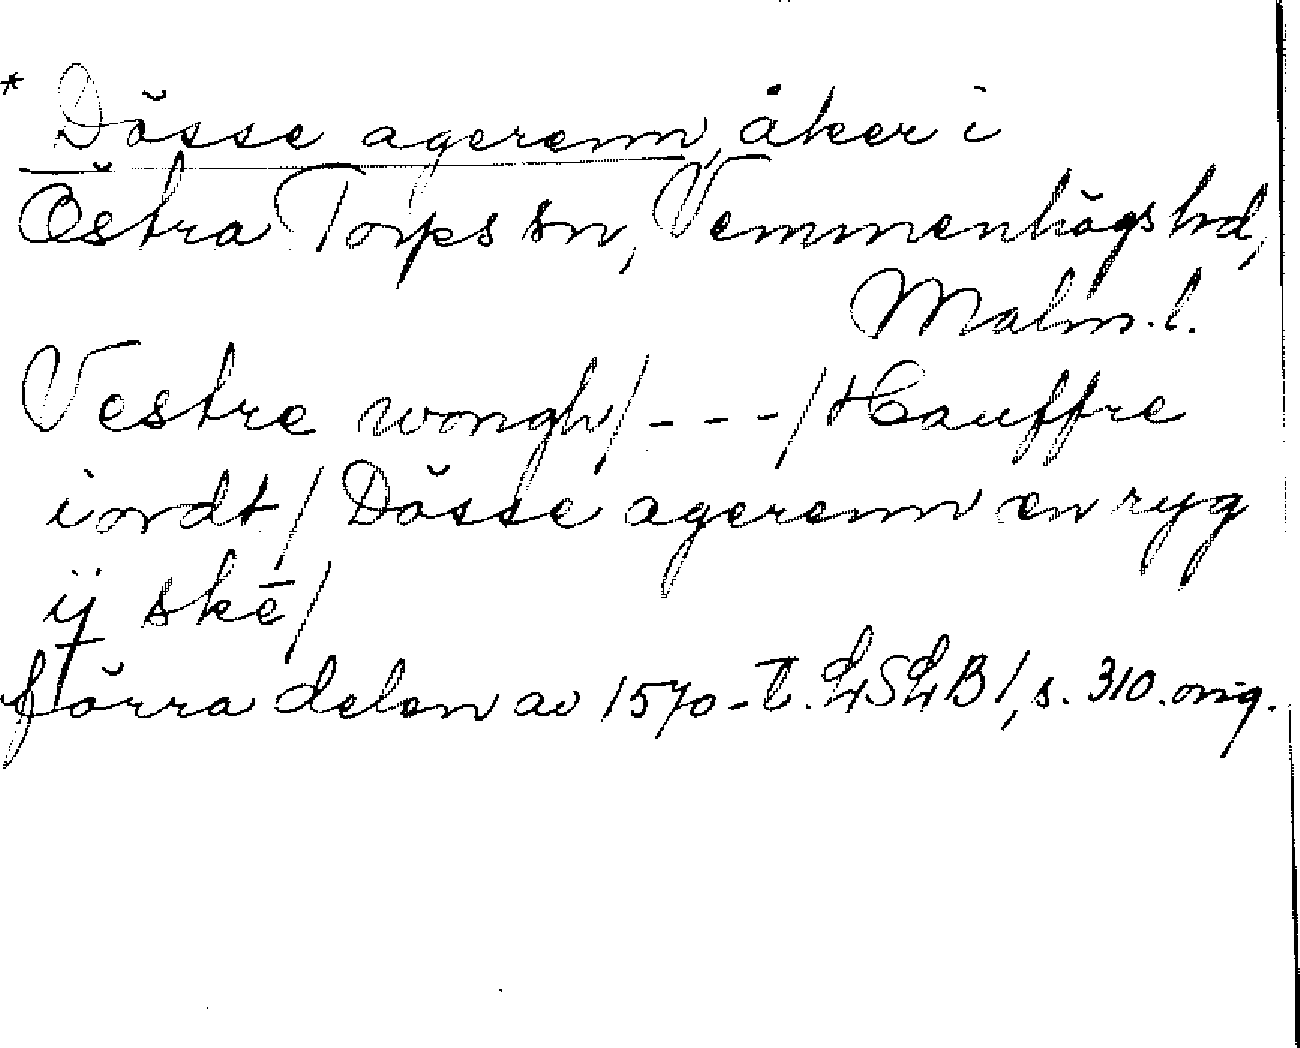 * Dösse agerenn, åker i
Östra Torps sn, Vemmenhögs hd,
Malm. l.
Vestre wongh/ - - - /Hauffre
iordt/ Dösse agerenn en ryg
ij skē/
förra delen av 1570-t. LSLB 1, s. 310. orig.